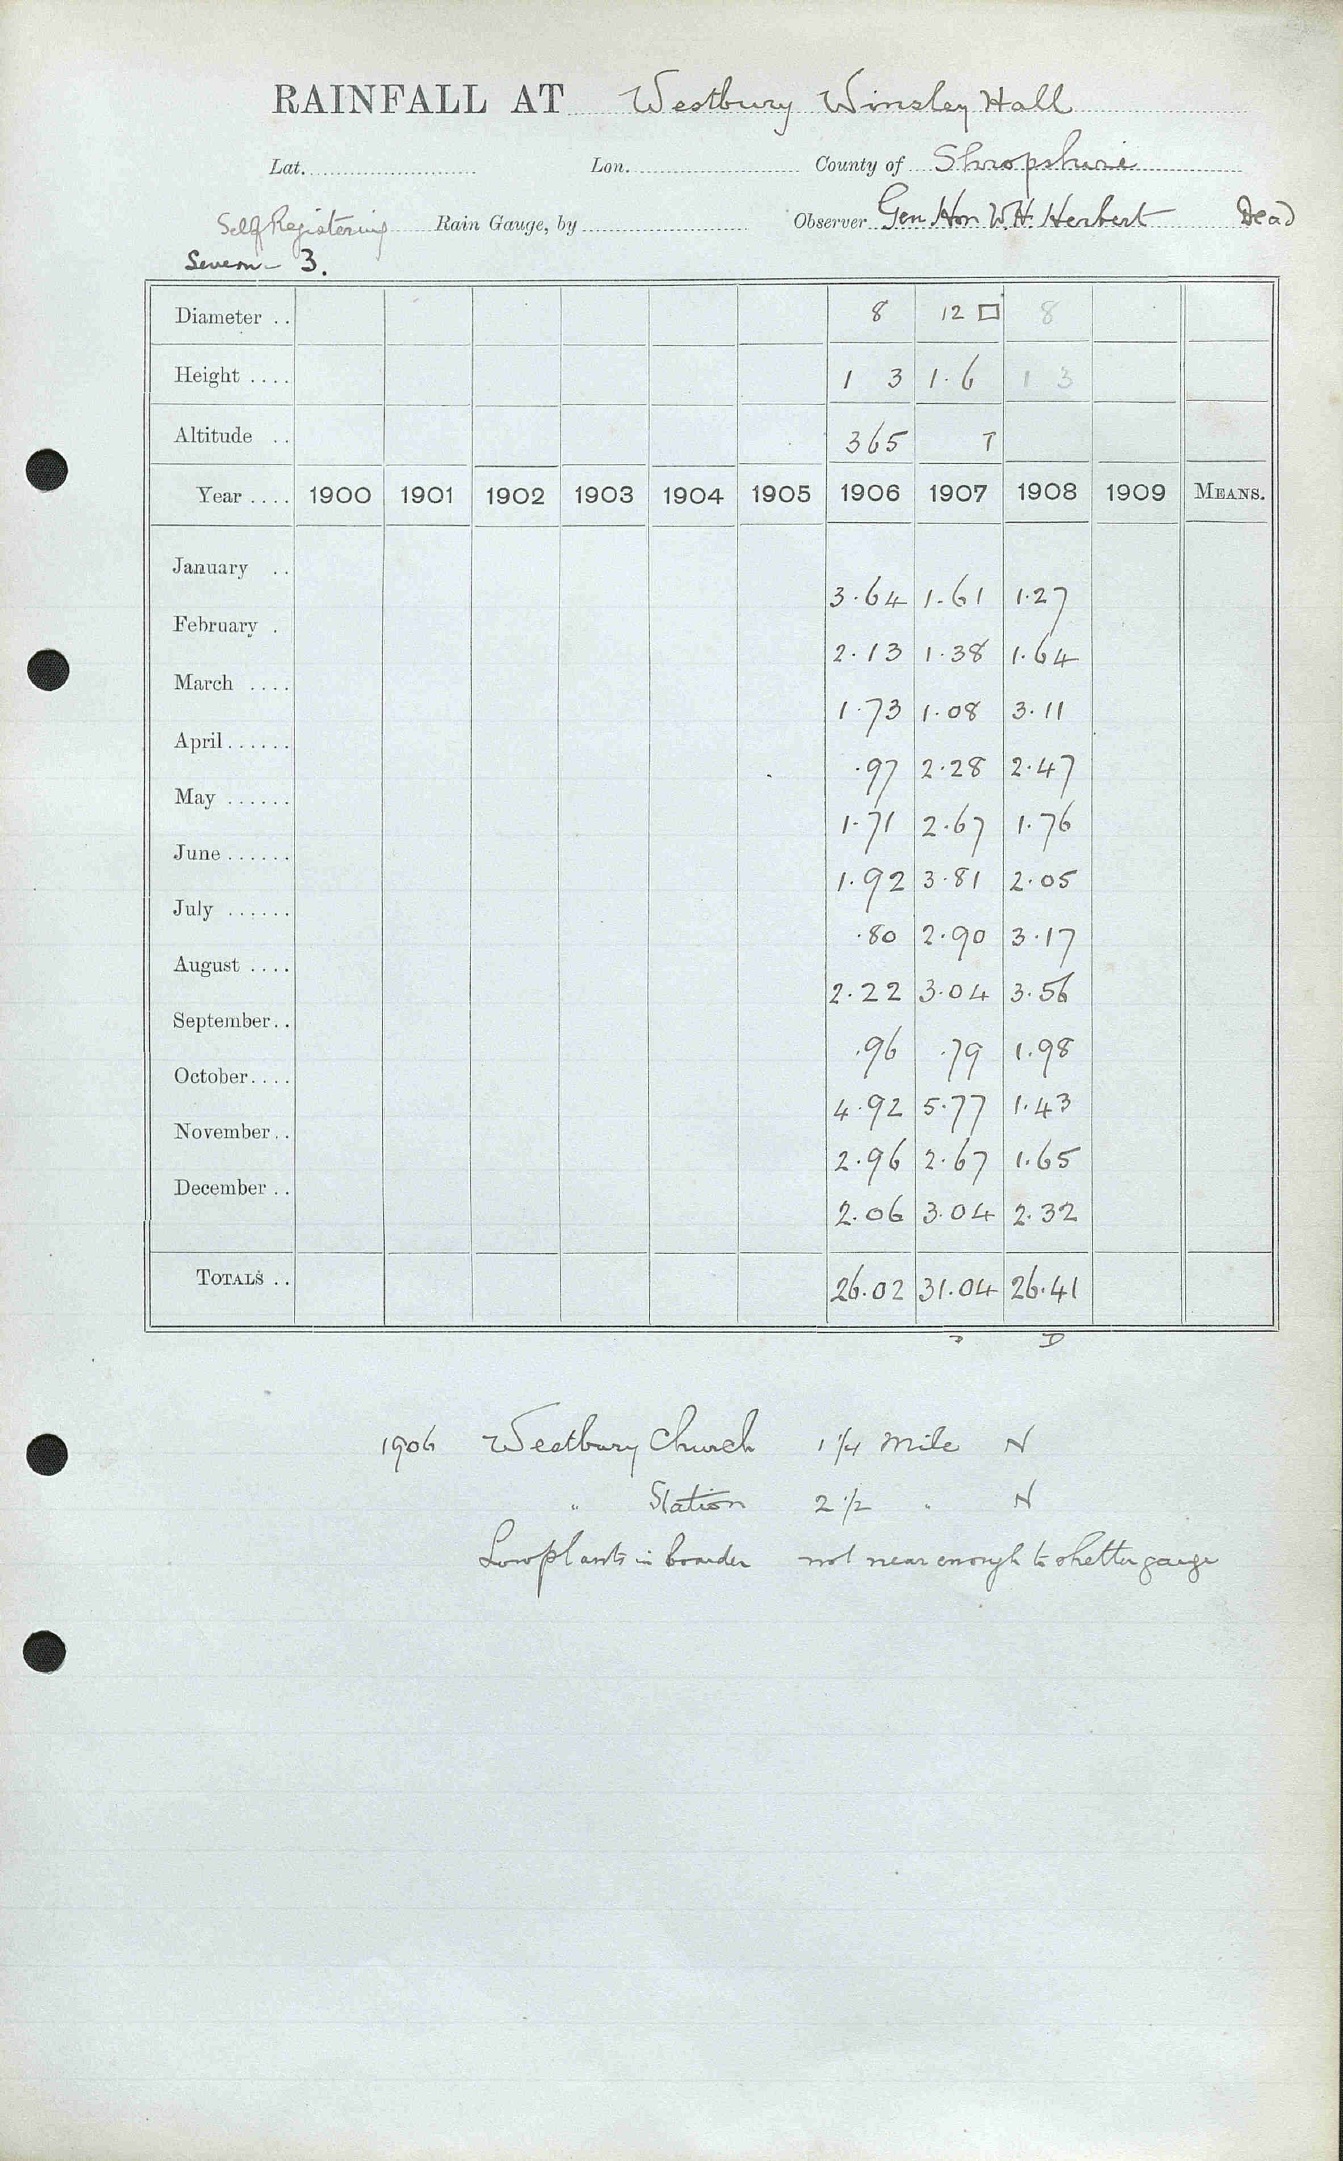 RAINFALL AT Westbury Winsley Hall
Lat. Lon. County of Shropshire
Self Registering Rain Gauge, by Observer Gen Hon W.H. Herbert Dead
Severn - 3.
Diameter .. 8 12 □ 8
Height .... 1 3 1.6 1 3
Altitude .. 365 T
Year .... 1900 1901 1902 1903 1904 1905 1906 1907 1908 1909 MEANS.
January .. 3.64 1.61 1.27
February . 2.13 1.38 1.64
March .... 1.73 1.08 3.11
April ...... .97 2.28 2.47
May ...... 1.71 2.67 1.76
June ...... 1.92 3.81 2.05
July ...... .80 2.90 3.17
August .... 2.22 3.04 3.56
September .. .96 .79 1.98
October .... 4.92 5.77 1.43
November .. 2.96 2.67 1.65
December .. 2.06 3.04 2.32
TOTALS .. 26.02 31.04 26.41
D D
1906 Westbury Church 1 1/4 Mile N
" Station 2 1/2 " N
Low plants in boarder not near enough to shelter gauge